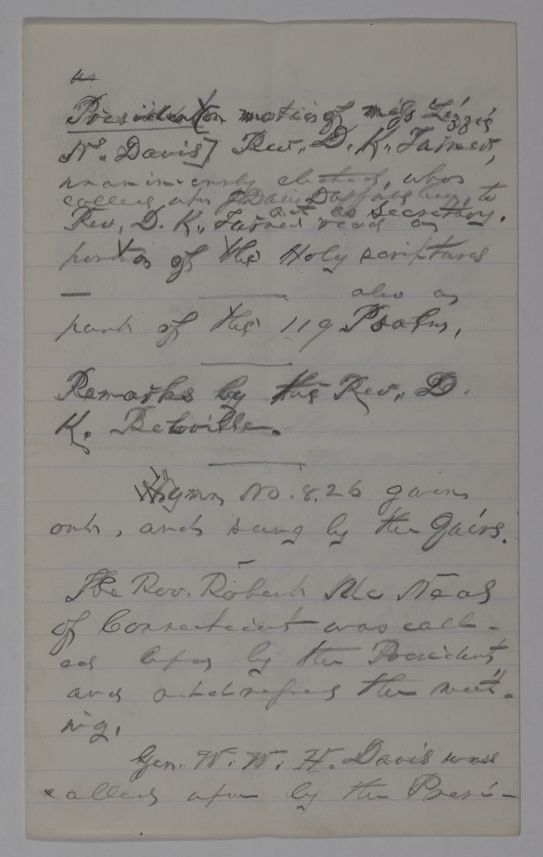 President on motion of miss Lizzie
N. Davis] Rev. D. K. Turner,
unanimously elected, who
called upon J. Davis to
Rev. D. K. Turner act as secretary.
read a
portion of the Holy scriptures
— also a
part of the 119 Psalm.
Remarks by the Rev. D.
K.
Hymn No. 826 given
out, and sung by the Quire.
The Rev. Robert Mc Neal
of Connecticut was call-
ed upon by the President,
and addressed the meet-
ing.
Gen. W. W. H. Davis was
called upon by the Presi-